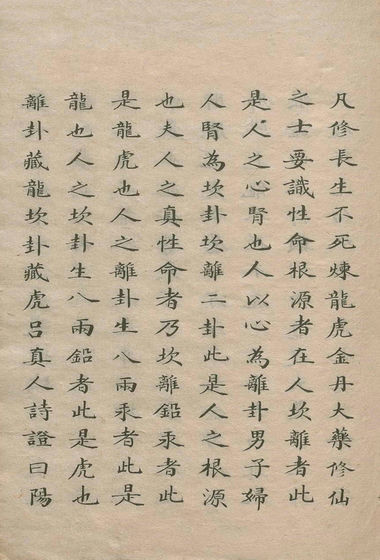 凡修長生不死煉龍虎金丹大藥修仙
之士要識性命根源者在人坎離者此
是人之心腎也人以心為離卦男子婦
人腎為坎卦坎離二卦此是人之根源
也夫人之真性命者乃坎離鉛汞者此
是龍虎也人之離卦生八兩汞者此是
龍也人之坎卦生八兩鉛者此是虎也
離卦藏龍坎卦藏虎呂真人詩證曰陽